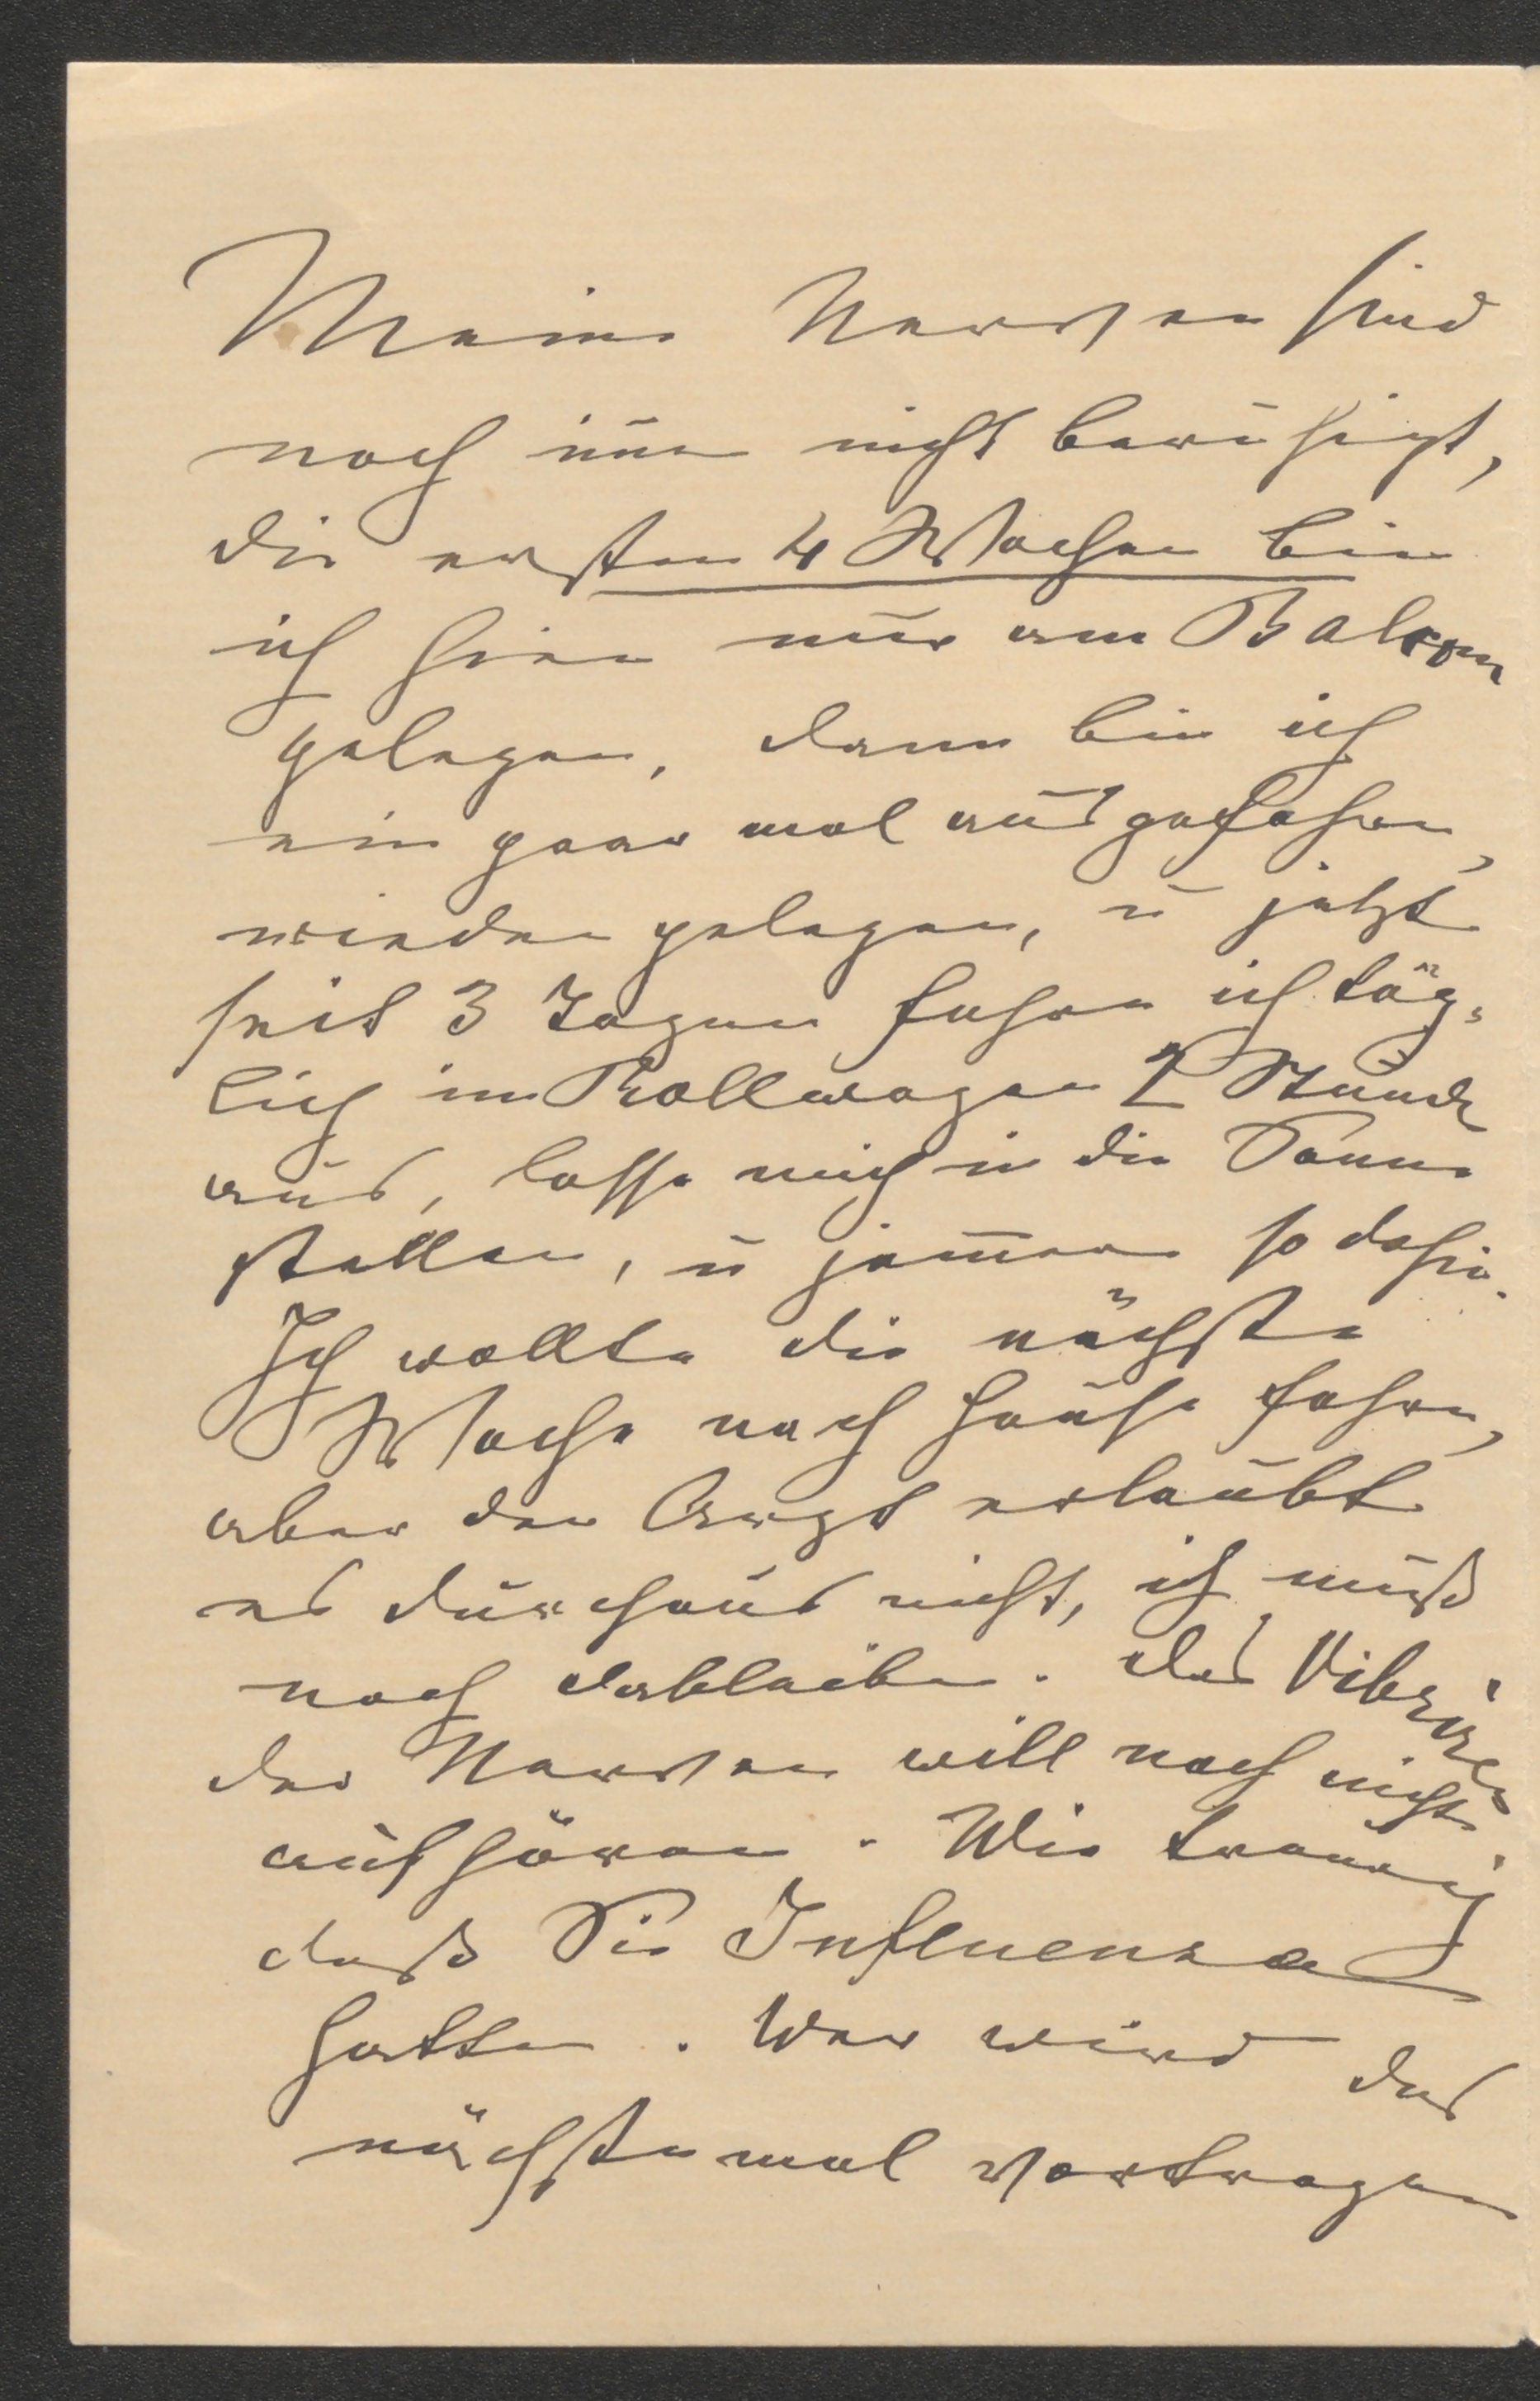 Meine Nerven sind
noch im̅er nicht beruhigt,
die ersten 4 Wochen bin
ich hier nur am Balkon
gelegen, dann bin ich
ein paar mal ausgefahren,
wieder gelegen, u jetzt
seit 3 Tagen fahre ich täg-
lich im Rollwagen 2 Stunde
aus, lasse mich in die Sonne
stellen, u jam̅ere so dahin.
Ich wollte die nächste
Woche nach Hause fahren,
aber der Arzt erlaubt
es durchaus nicht, ich muß
noch dableiben. Das Vibriren
der Nerven will noch nicht
aufhören. Wie traurig
daß Sie Influenza
hatten. Wer wird das
nächstemal vortragen